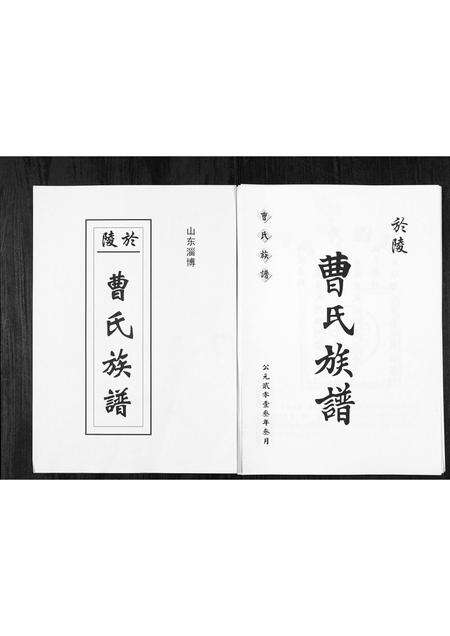 山东淄博
於陵
曹氏族譜
於陵
曹氏族譜
曹氏族譜
公元贰零壹叁年叁月